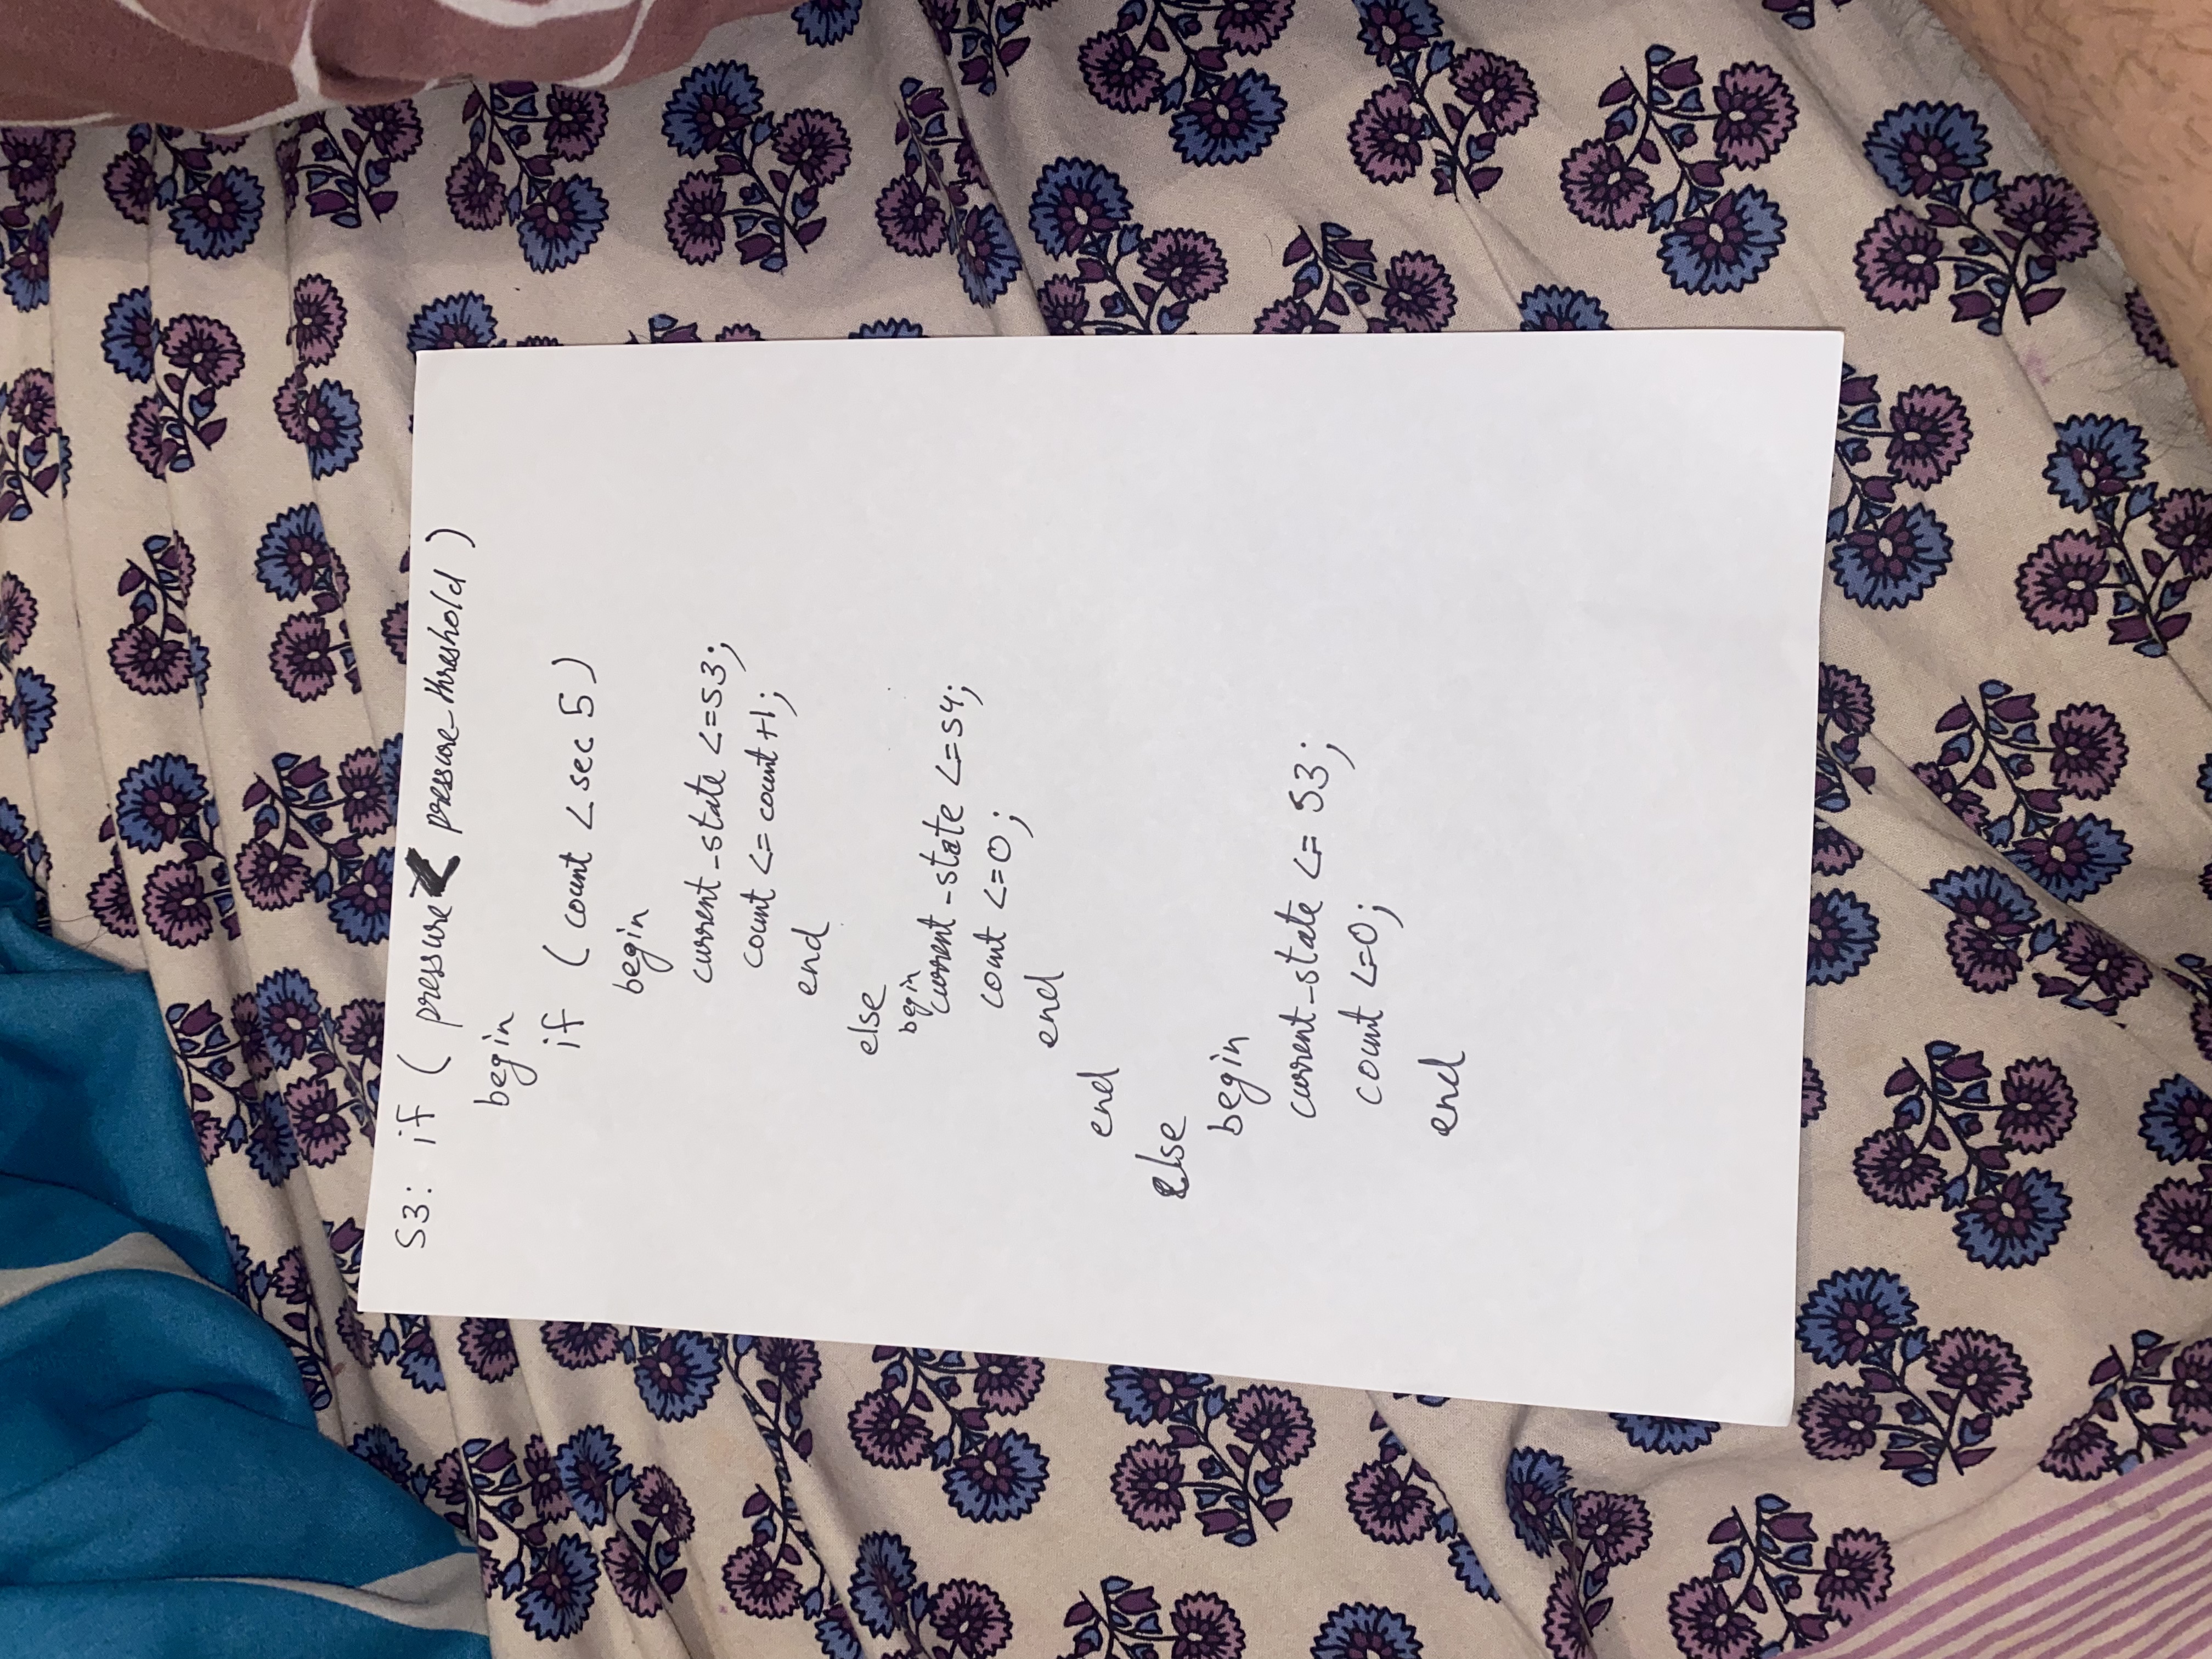 S3: if ( pressure < pressure_threshold )
begin
if ( count < sec 5 )
begin
current_state <= S3;
count <= count +1;
end
else
begin
current_state <= S4;
count <= 0;
end
end
else
begin
current_state <= S3;
count <= 0;
end